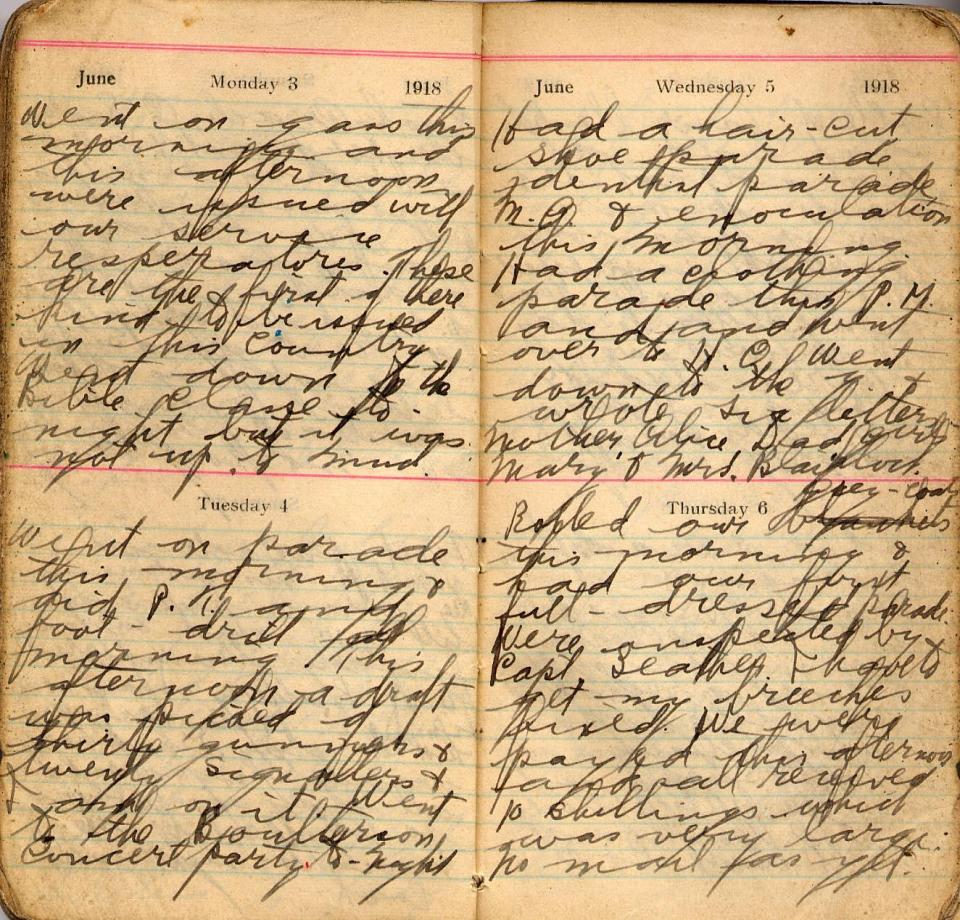 June Monday 3 1918
Went on gass this
morning and
this afternoon
were issued with
our service
resperatores. These
are the first of there
kind to be issued
in this country
Went down to the
Bible Class to
night but it was
not up to mind.
Tuesday 4
Went on parade
this morning &
did P.T. and
foot-drill all
morning This
afternoon a draft
was picked of
thirty gunners &
twenty signallers &
I am on it. Went
to the
Concert party to-night
June Wednesday 5 1918
Had a hair-cut
shoe parade
dentist parade
M.O. & enoculation
this morning
Had a clothing
parade this P.M.
and and went
over to Went
down to the Y. &
wrote six letters
Mother Alice Dad girls
Mary & Mrs.
Thursday 6
grey-coats
Rolled our
this morning &
had our first
full-dress parade.
Were inspected by
Capt. & have to
get my breeches
fixed. We were
payed this afternoon
and all received
10 shillings which
was very large.
No mail as yet.